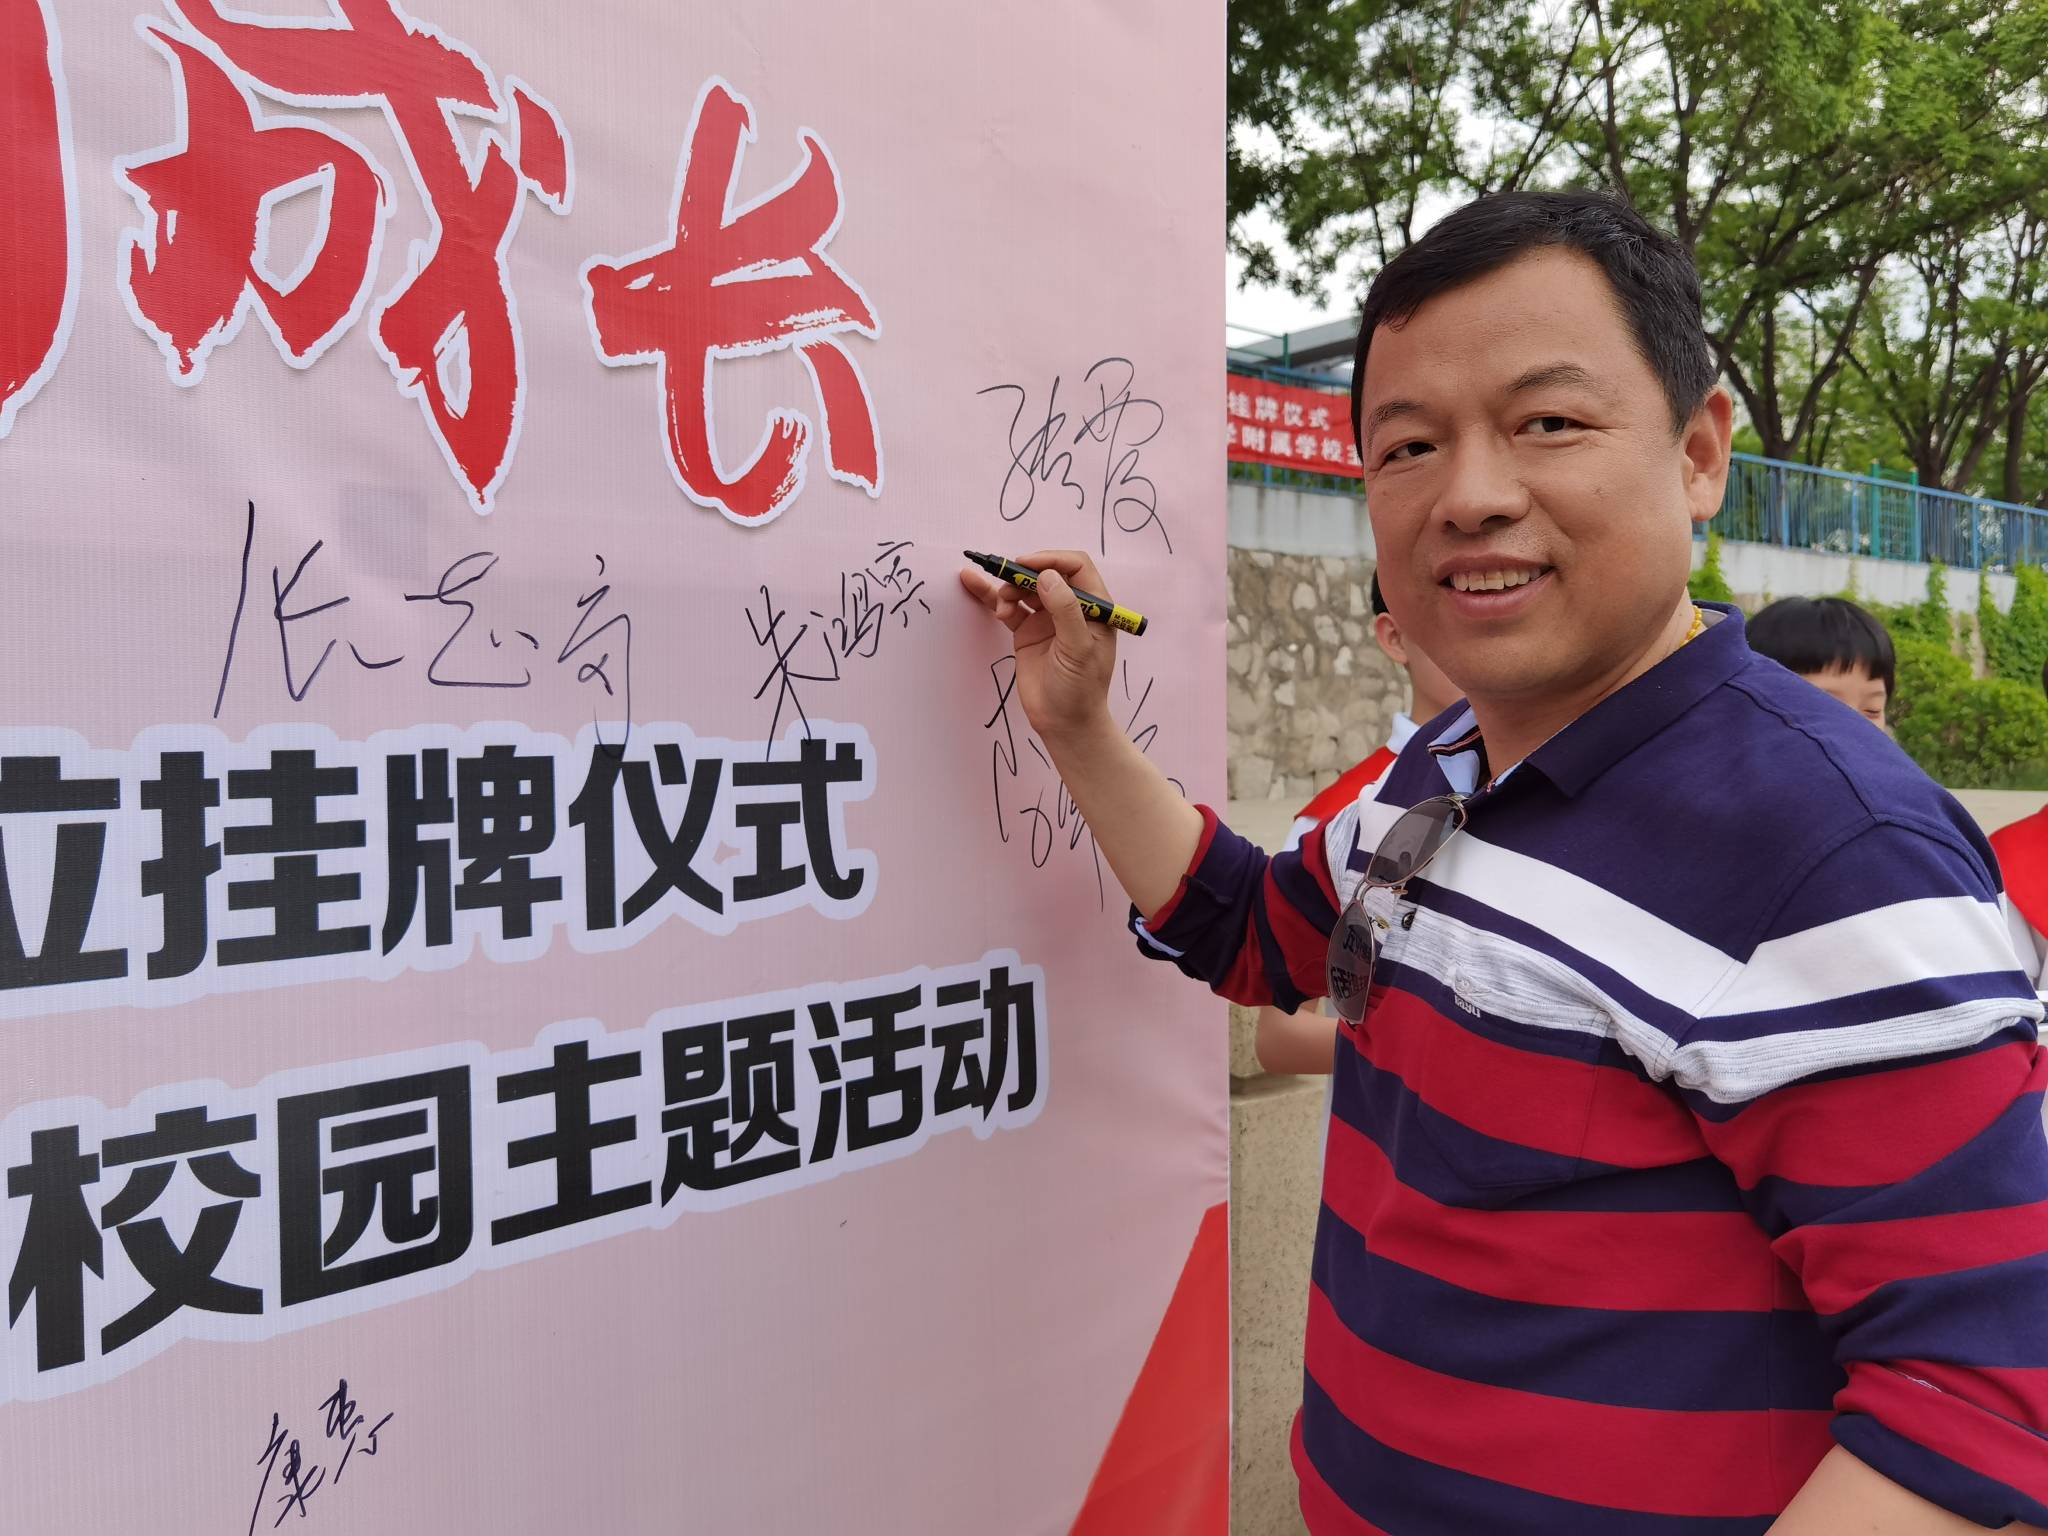 成长
张霞
张志奇
朱鸿宾
位挂牌仪式
校园主题活动
康惠
挂牌仪式
学附属学校